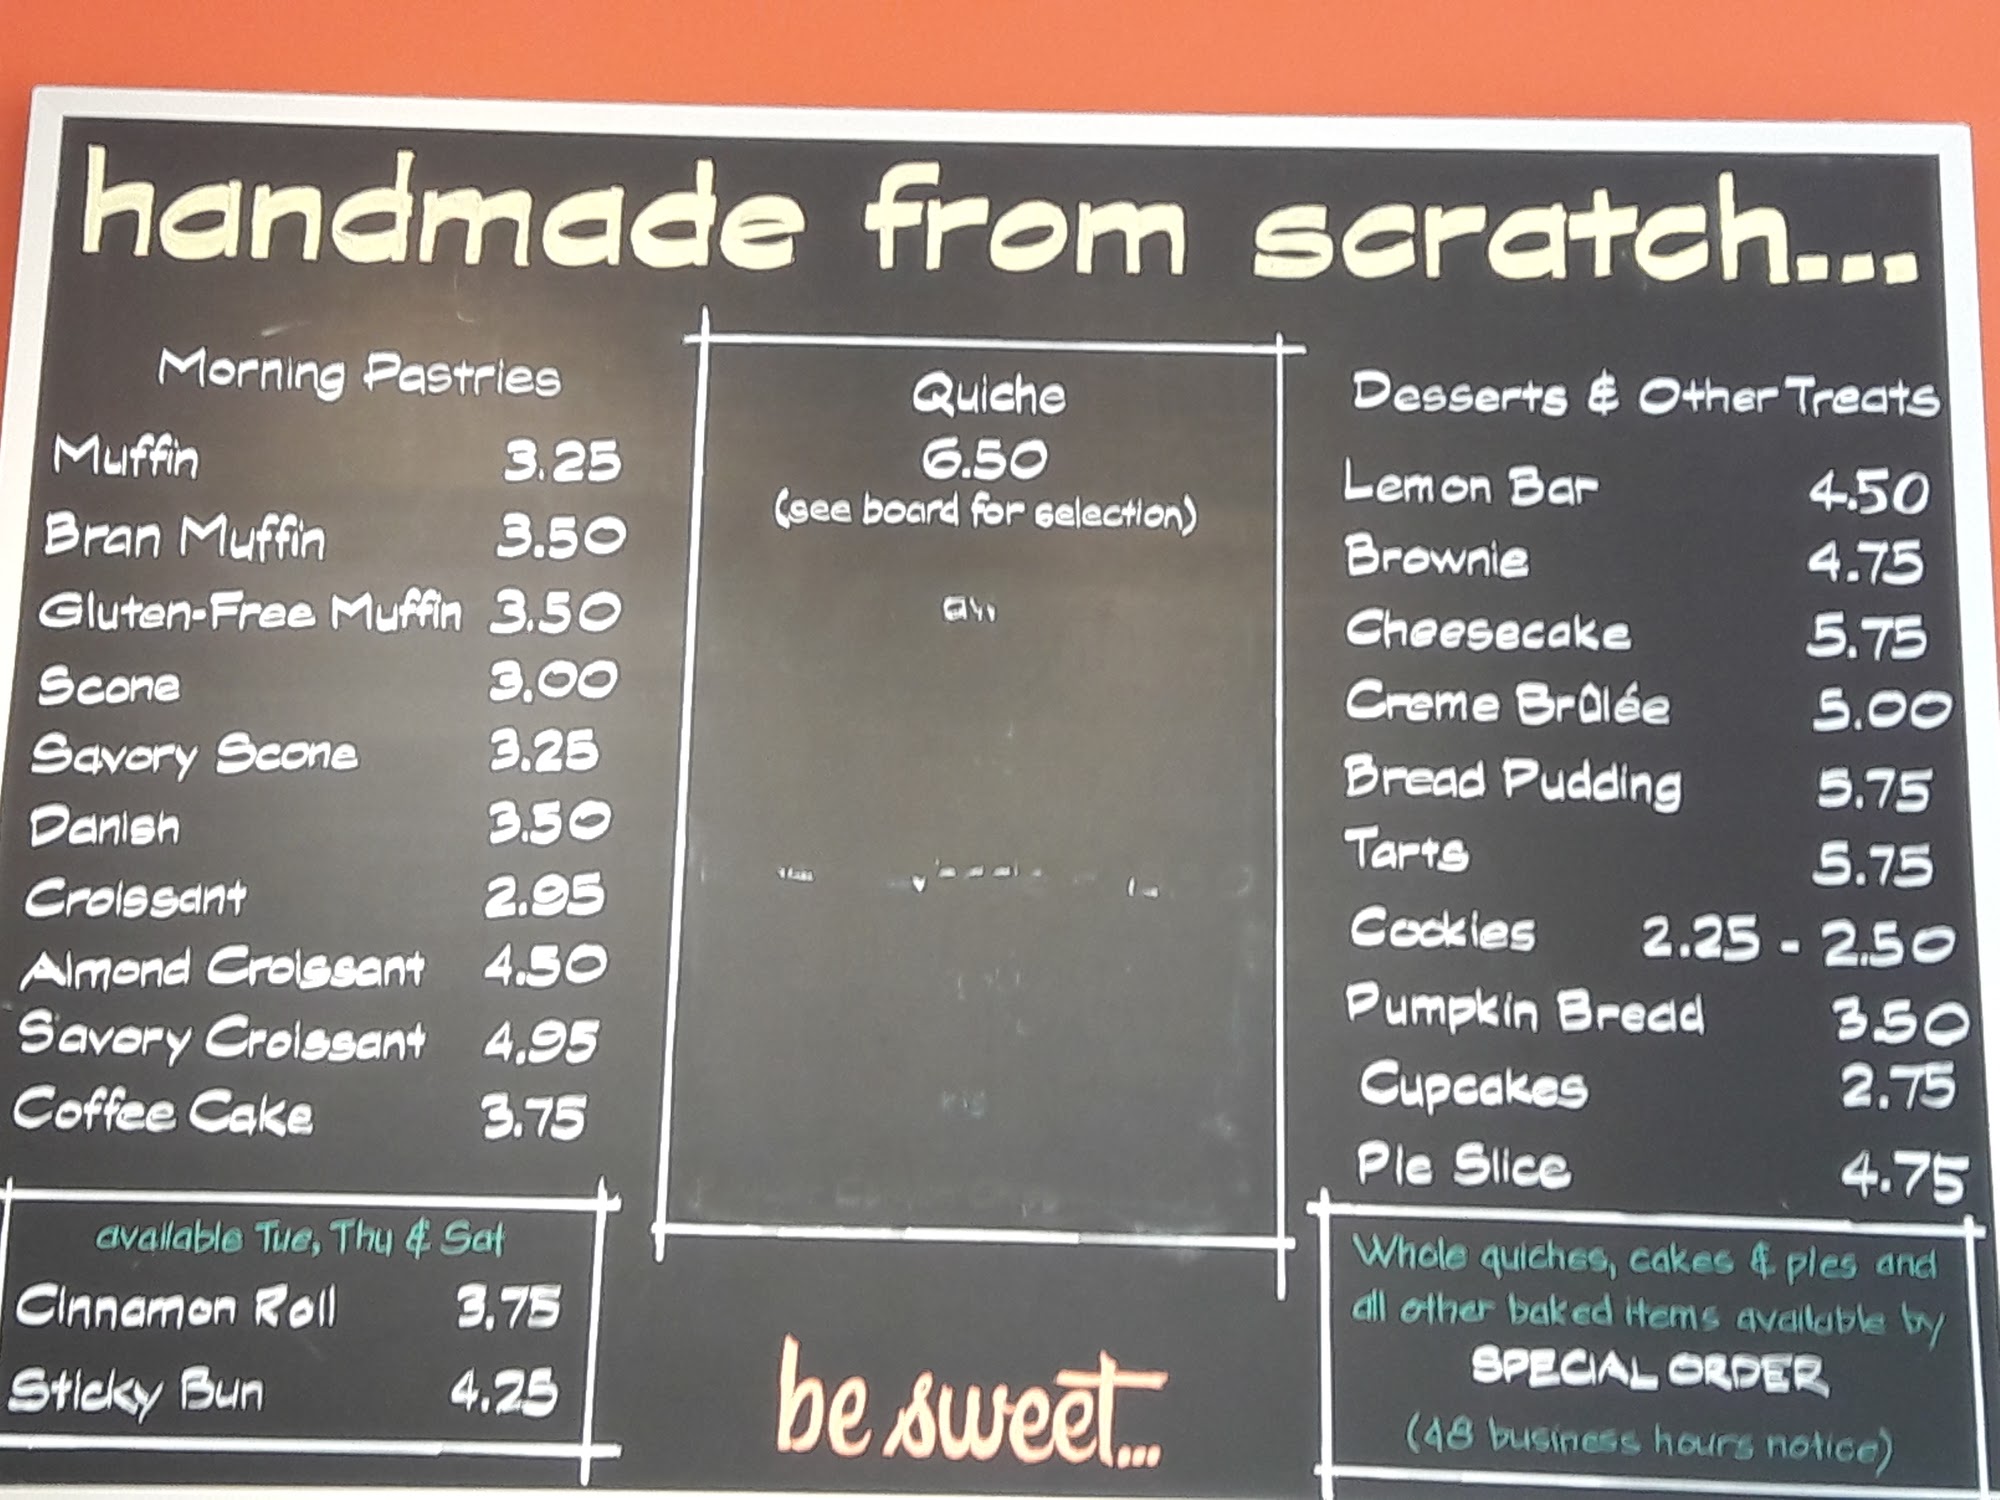 handmade from scratch...
Morning Pastries
Muffin 3.25
Bran Muffin 3.50
Gluten-Free Muffin 3.50
Scone 3.00
Savory Scone 3.25
Danish 3.50
Croissant 2.95
Almond Croissant 4.50
Savory Croissant 4.95
Coffee Cake 3.75
available Tue, Thu & Sat
Cinnamon Roll 3.75
Sticky Bun 4.25
Quiche
6.50
(see board for selection)
be sweet...
Desserts & Other Treats
Lemon Bar 4.50
Brownie 4.75
Cheesecake 5.75
Creme Brûlée 5.00
Bread Pudding 5.75
Tarts 5.75
Cookies 2.25 - 2.50
Pumpkin Bread 3.50
Cupcakes 2.75
Pie Slice 4.75
Whole quiches, cakes & pies and
all other baked items available by
SPECIAL ORDER
(48 business hours notice)